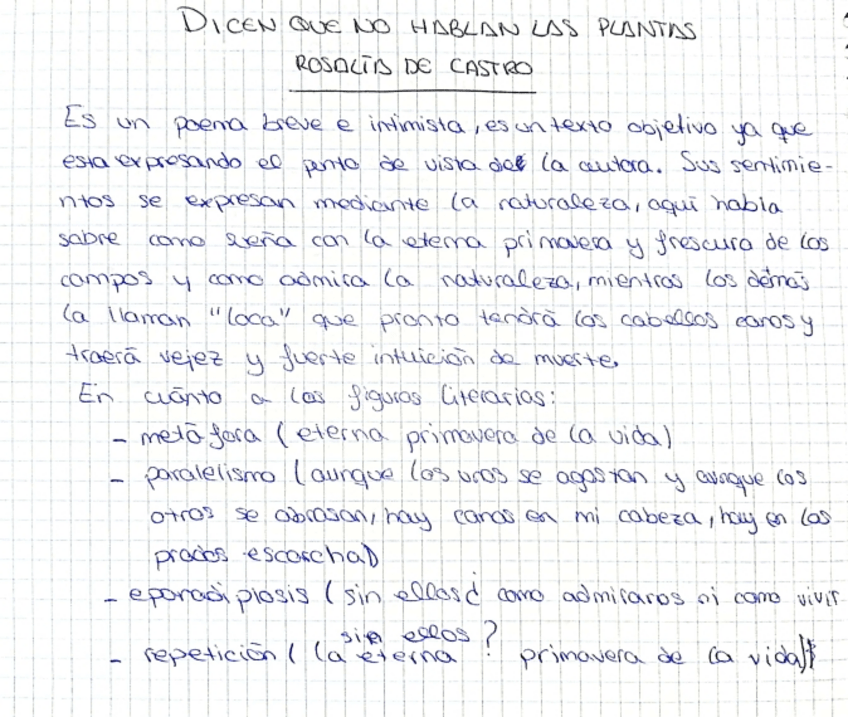 DICEN QUE NO HABLAN LAS PLANTAS
ROSALÍA DE CASTRO
Es un poema breve e intimista, es un texto objetivo ya que
esta expresando el punto de vista de la autora. Sus sentimie-
ntos se expresan mediante la naturaleza, aquí habla
sobre como sueña con la eterna primavera y frescura de los
campos y como admira la naturaleza, mientras los demás
la llaman "loca" que pronto tendrá los cabellos canos y
traerá vejez y fuerte intuición de muerte.
En cuánto a las figuras literarias:
- metáfora (eterna primavera de la vida)
- paralelismo (aunque los unos se agostan y aunque los
otros se abrasan, hay canas en mi cabeza, hay en los
prados escarcha)
- eponadiplosis (sin ellos ¿ como admiraros ni como vivir
sin ellos?
- repetición ( la eterna primavera de la vida)